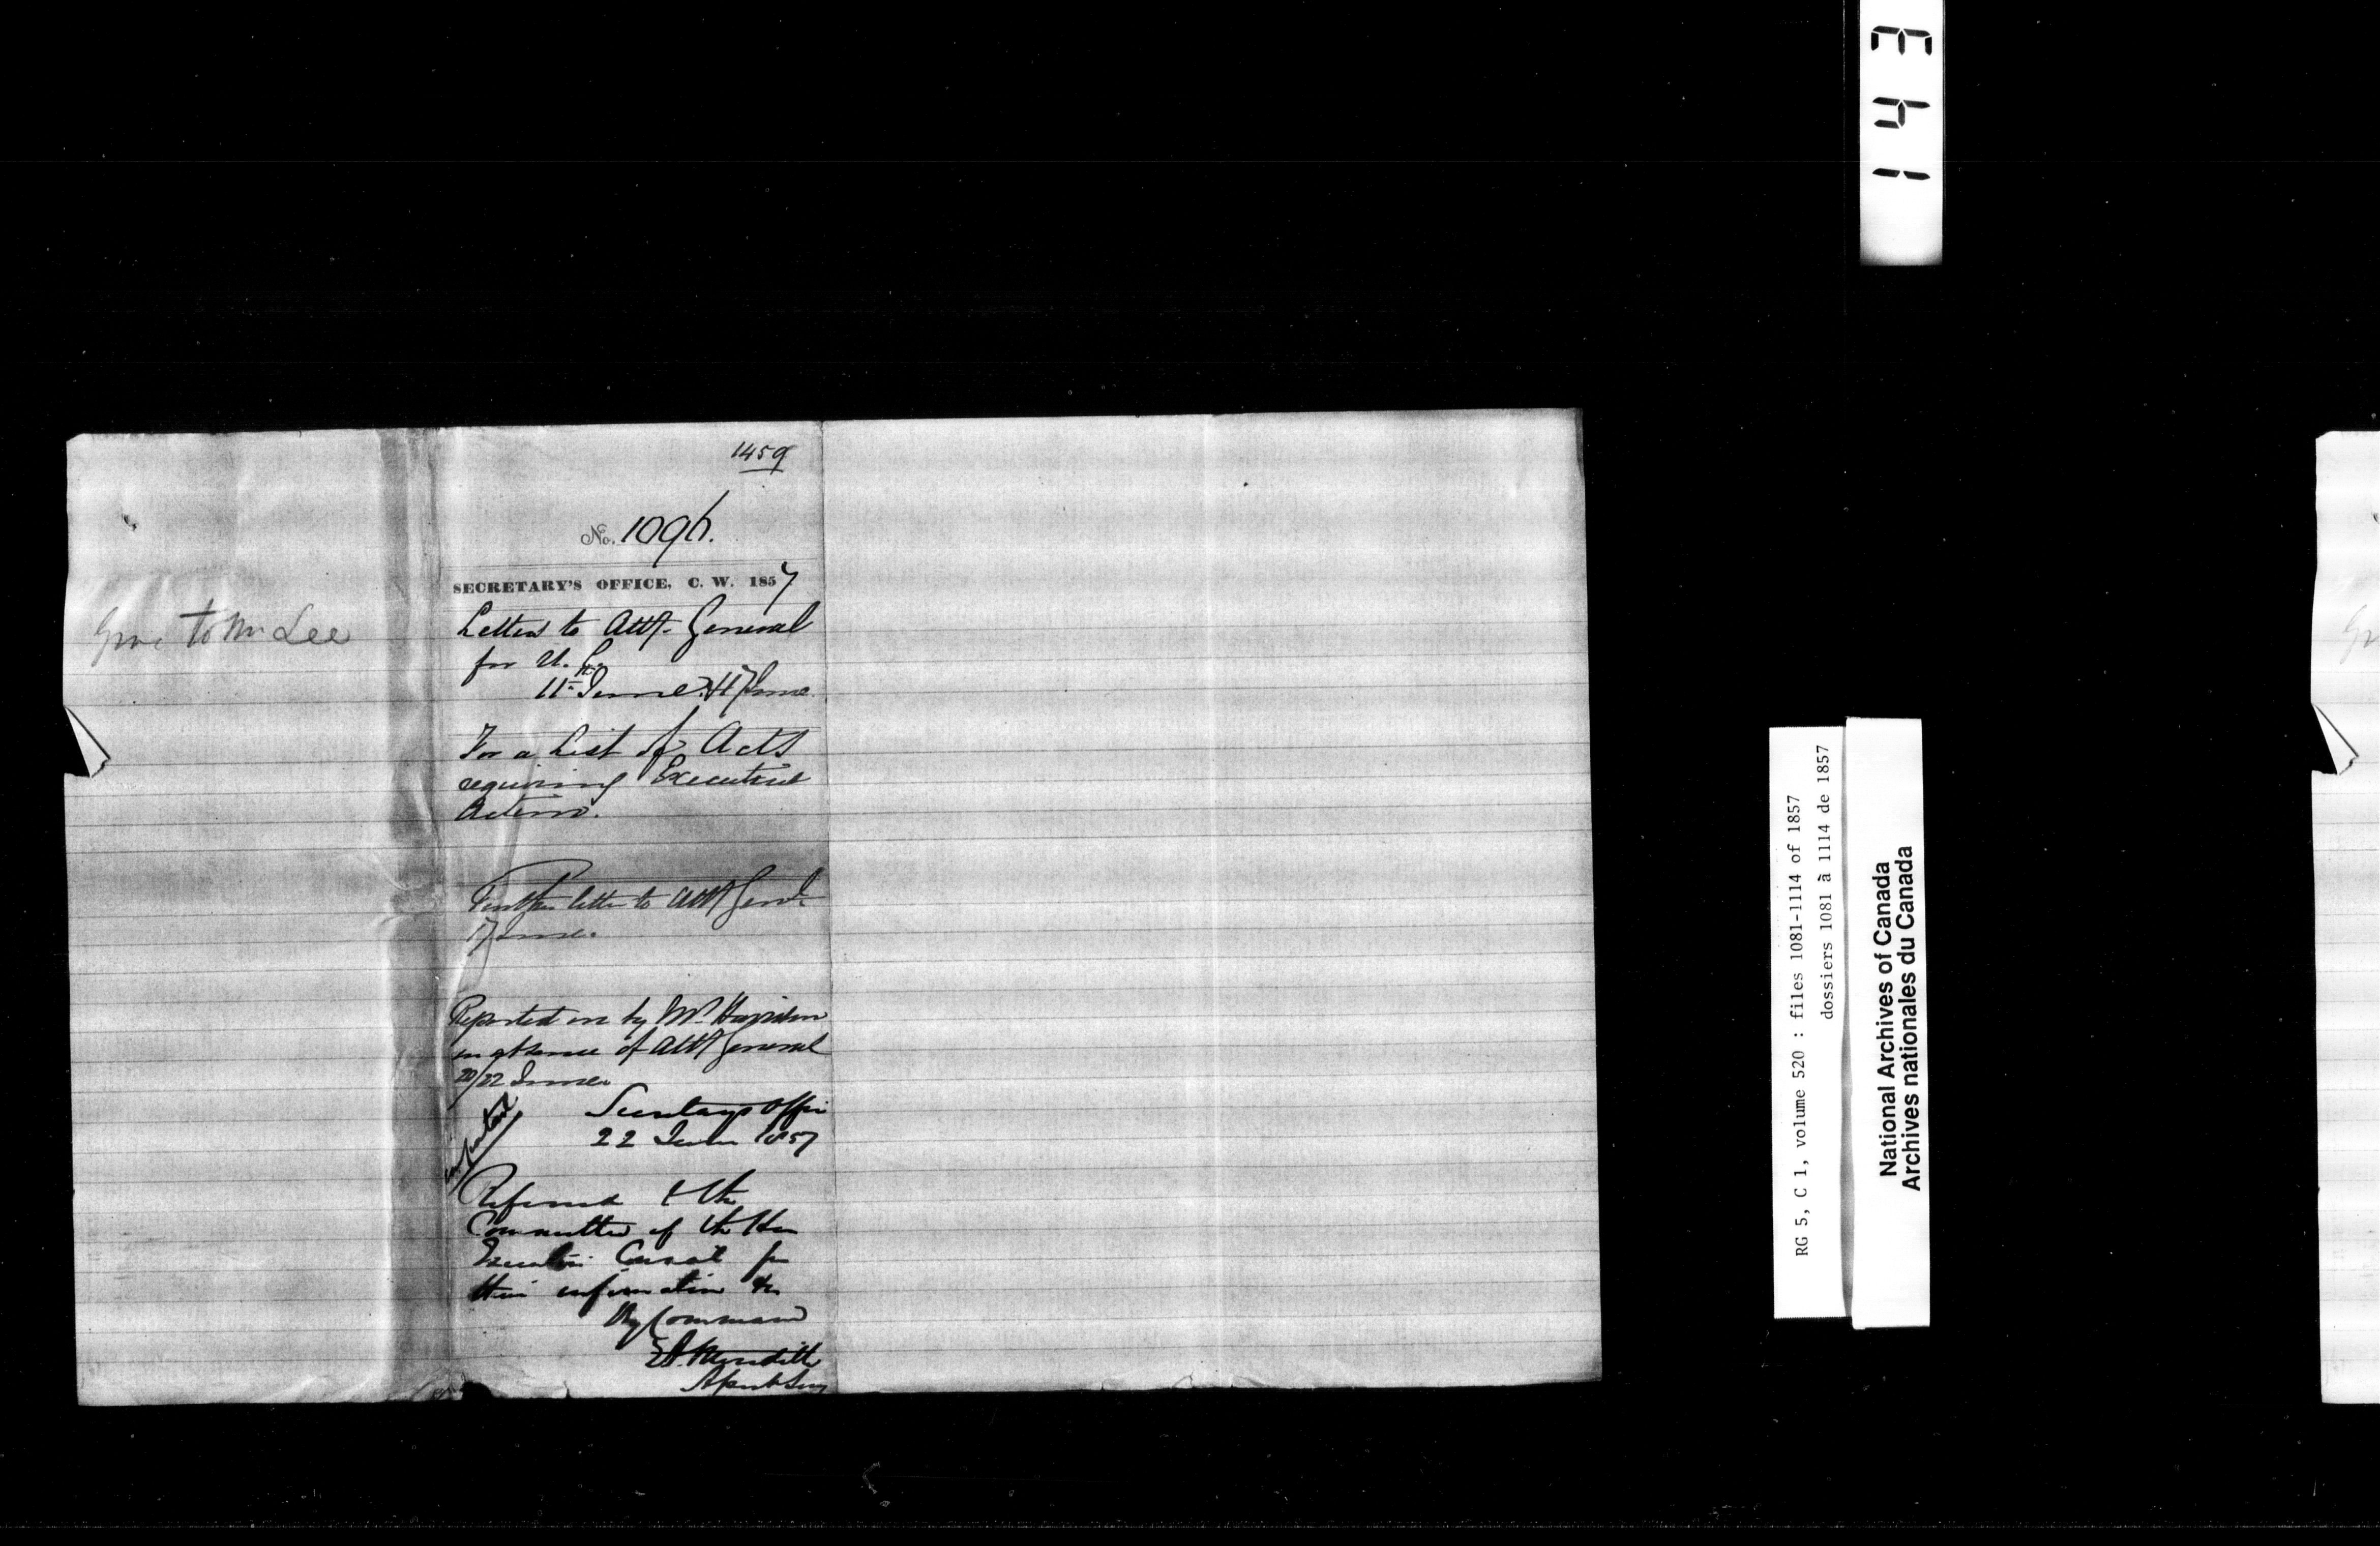 Give to Mr Lee
1459
No. 1096.
SECRETARY'S OFFICE, C. W. 1857
Letter to Atty. General
for U. C.
11th June & 17 June
For a List of Acts
requiring Executive
Action.
Further letter to Atty Genl.
17 June.
Reported on by Mr. Harrison
in absence of Atty General
20/22 June.
Secretarys Office
22 June 1857
Important
Referred to the
Committee of the Hon
Executive Council for
their information &c
By Command
E A Meredith
Asst Secy
143
RG 5, C 1, volume 520 : files 1081-1114 of 1857
dossiers 1081 à 1114 de 1857
National Archives of Canada
Archives nationales du Canada